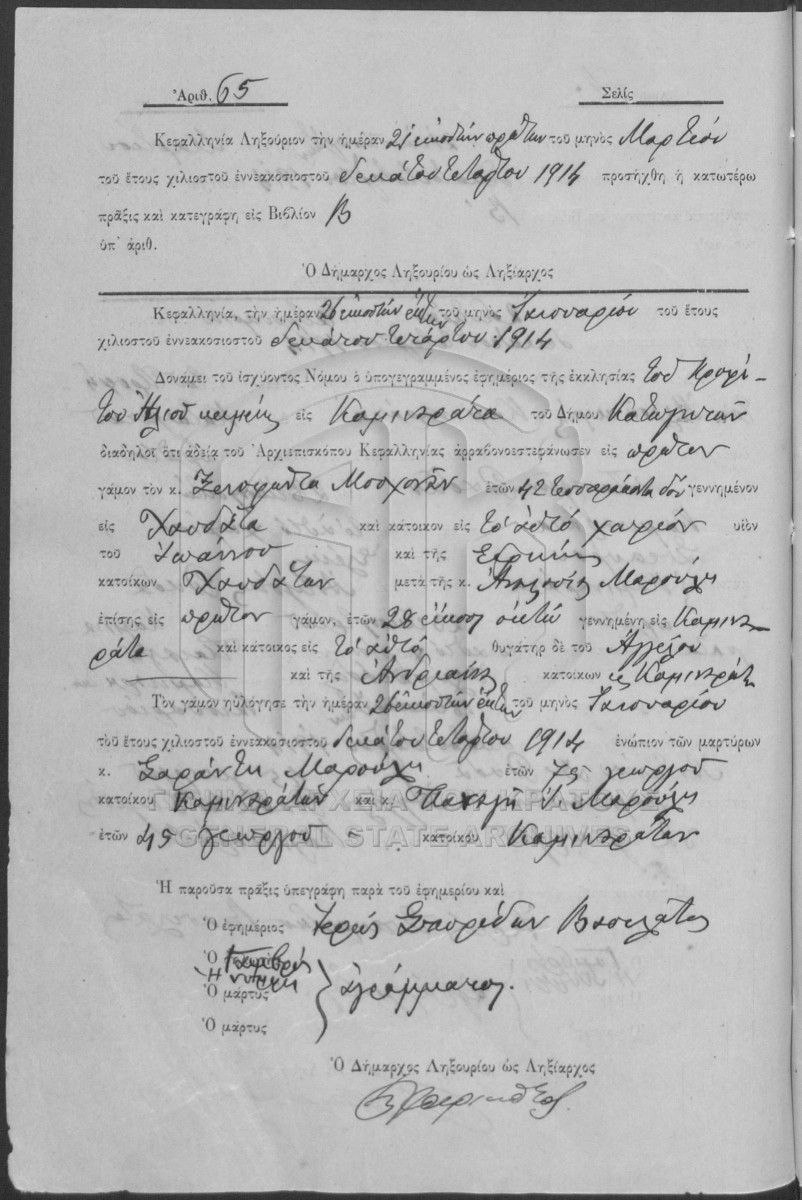 Ἀριθ. 65 Σελὶς
Κεφαλληνία Ληξούριον τὴν ἡμέραν 21 εἰκοστήν πρώτην τοῦ μηνὸς Μαρτίου
τοῦ ἔτους χιλιοστοῦ ἐννεακοσιοστοῦ δεκάτου τετάρτου 1914 προσήχθη ἡ κατωτέρω
πρᾶξις καὶ κατεγράφη εἰς Βιβλίον Β
ὑπ᾽ ἀριθ.
Ὁ Δήμαρχος Ληξουρίου ὡς Ληξίαρχος
Κεφαλληνία, τὴν ἡμέραν 26 εἰκοστήν ἕκτην τοῦ μηνὸς Ἰανουαρίου τοῦ ἔτους
χιλιοστοῦ ἐννεακοσιοστοῦ δεκάτου τετάρτου 1914
Δυνάμει τοῦ ἰσχύοντος Νόμου ὁ ὑπογεγραμμένος ἐφημέριος τῆς ἐκκλησίας τοῦ Προφή-
του Ἠλιού εἰς Καμιναράτα τοῦ Δήμου Κατωγητῶν
διαδηλοῖ ὅτι ἀδείᾳ τοῦ Ἀρχιεπισκόπου Κεφαλληνίας ἀρραβονοεστεφάνωσεν εἰς πρῶτον
γάμον τὸν κ. Ξενοφῶντα Μοσχονᾶν ἐτῶν 42 τεσσαράκοντα δύο γεννημένον
εἰς Χαυδάτα καὶ κάτοικον εἰς τό αὐτό χωρίον υἱὸν
τοῦ Ἰωάννου καὶ τῆς Εἰρήνης
κατοίκων Χαυδάτων μετὰ τῆς κ. Μαρούλη
ἐπίσης εἰς πρῶτον γάμον, ἐτῶν 28 εἴκοσι ὀκτώ γεννημένη εἰς Καμινα-
ράτα καὶ κάτοικος εἰς τό αὐτό θυγάτηρ δὲ τοῦ Ἀγγέλου
καὶ τῆς Ἀνδριάνης κατοίκων εἰς Καμιναράτα
Τὸν γάμον ηὐλόγησε τὴν ἡμέραν 26 εἰκοστήν ἕκτην τοῦ μηνὸς Ἰανουαρίου
τοῦ ἔτους χιλιοστοῦ ἐννεακοσιοστοῦ δεκάτου τετάρτου 1914 ἐνώπιον τῶν μαρτύρων
κ. Σαράντη Μαρούλη ἐτῶν 75 γεωργοῦ
κατοίκου Καμιναράτων καὶ κ. Μαρούλη
ἐτῶν 45 γεωργοῦ κατοίκου Καμιναράτων
Ἡ παροῦσα πρᾶξις ὑπεγράφη παρὰ τοῦ ἐφημερίου καὶ
Ὁ ἐφημέριος Ἱερεύς Σπυρίδων
Ὁ Γαμβρός
Ἡ νύμφη
Ὁ μάρτυς ἀγράμματοι.
Ὁ μάρτυς
Ὁ Δήμαρχος Ληξουρίου ὡς Ληξίαρχος
ΓΕΝΙΚΑ ΑΡΧΕΙΑ ΤΟΥ ΚΡΑΤΟΥΣ
GENERAL STATE ARCHIVES